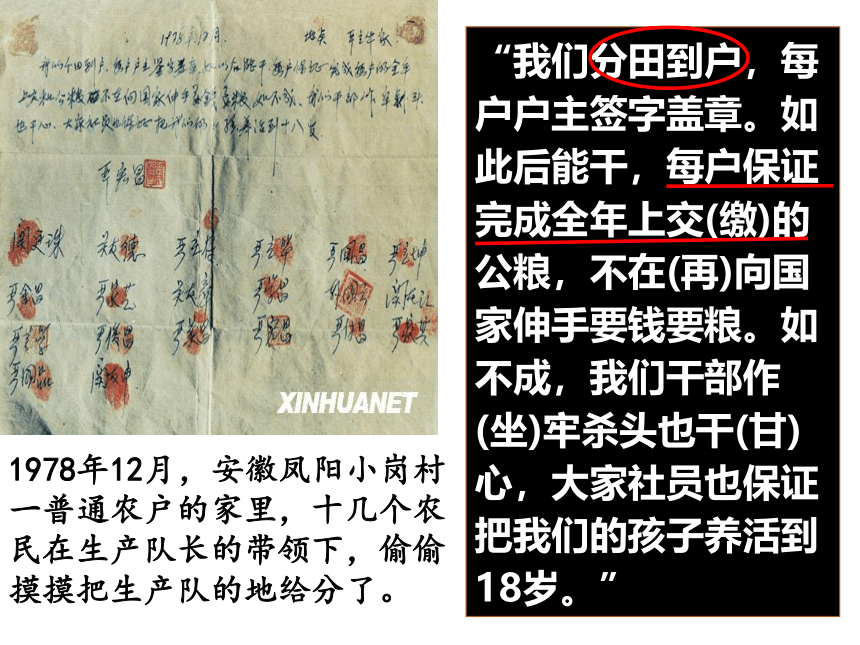 1978年12月 地点 严立华家
我们分田到户,每户户主签字盖章,如以后能干,每户保证完成每户的全年
上交和公粮,不在向国家伸手要钱要粮,如不成,我们干部作牢杀头
也干心,大家社员也保证把我们的小孩养活到十八岁
严宏昌
关廷珠 严立符 严立华 严国昌 严立坤
严金昌 严家芝 严学昌
严俊昌 严美昌 严宏昌 严付昌 严家其
严国品 关友申
XINHUANET
1978年12月,安徽凤阳小岗村
一普通农户的家里,十几个农
民在生产队长的带领下,偷偷
摸摸把生产队的地给分了。
“我们分田到户,每
户户主签字盖章。如
此后能干,每户保证
完成全年上交(缴)的
公粮,不在(再)向国
家伸手要钱要粮。如
不成,我们干部作
(坐)牢杀头也干(甘)
心,大家社员也保证
把我们的孩子养活到
18岁。”